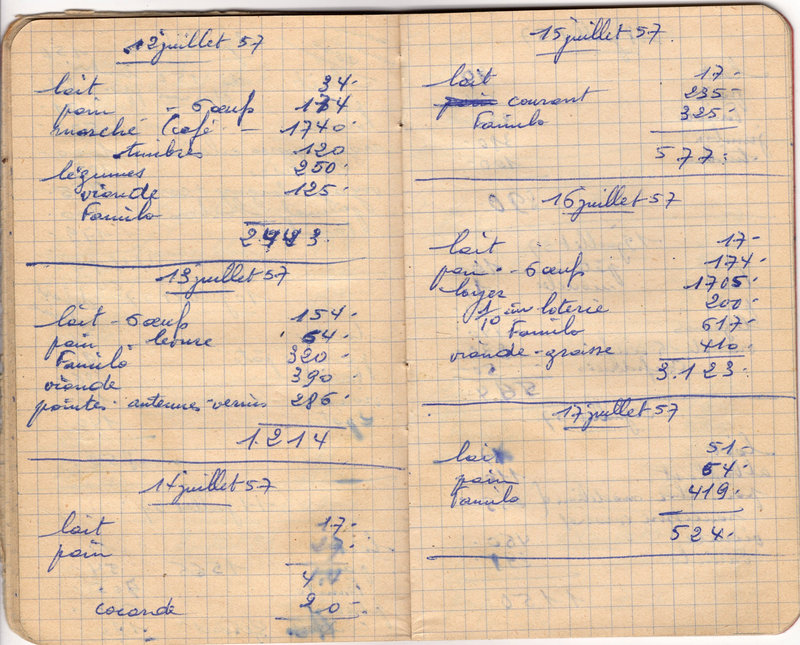 12 juillet 57
lait 34-
pain - 6 œufs 174
marché (café - 1740-
timbres 120
légumes 250-
viande 125-
Familo
2443.
13 juillet 57
lait - 6 œufs 154-
pain - levure 64-
Familo 320-
viande 390-
pointes - antennes - vernis 286-
1.214
14 juillet 57
lait 17-
pain
cocarde 20-
15 juillet 57
lait 17-
courant 235-
Familo 325-
577-
16 juillet 57
lait 17-
pain - 6 œufs 174-
loyer 1705-
1/10 loterie 200-
Familo 617-
viande - graisse 410-
3.123-
17 juillet 57
lait 51-
pain 54-
Familo 419-
524-